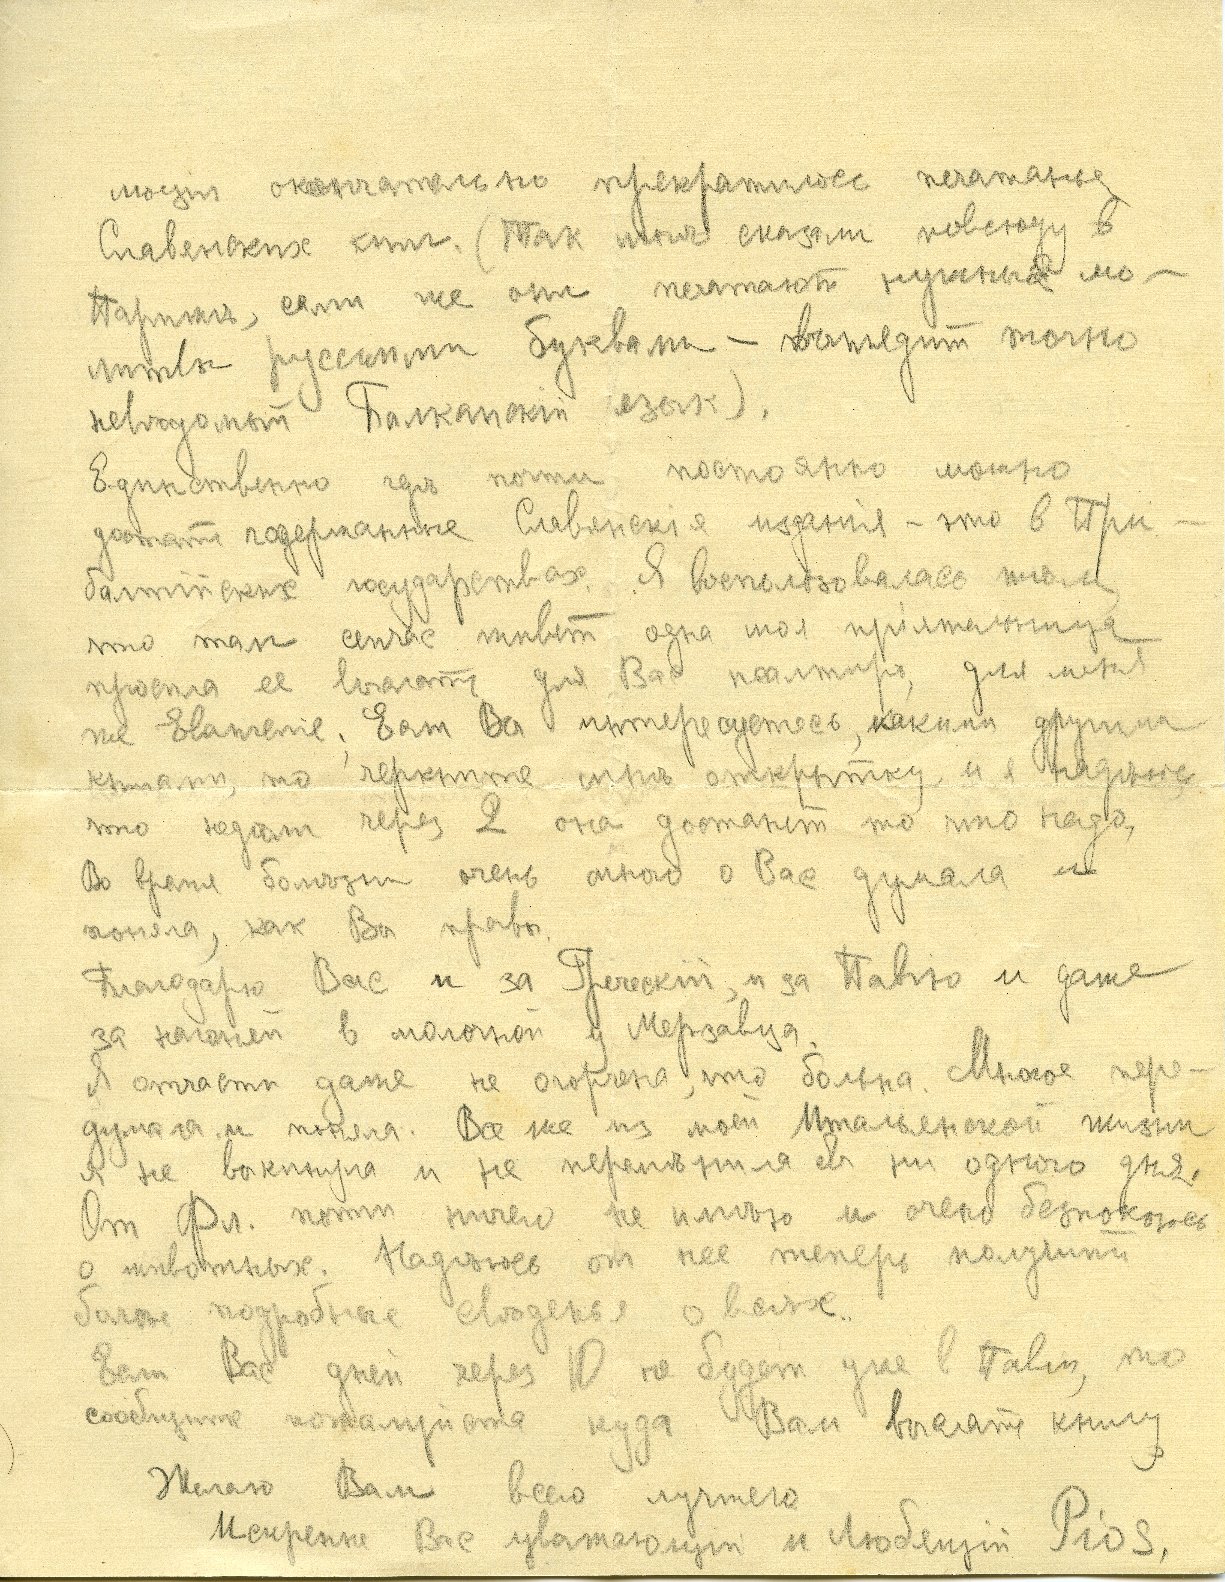 люции окончательно прекратилось печатанье
Славенских книг. (Так мнѣ сказали повсюду в
Парижѣ, если же они печатают нужныя мо-
литвы русскими буквами – выходит точно
неведомый Балканскій язык).
Единственно гдѣ почти постоянно можно
достать подержанные Славянскія изданія – это в При-
балтійских государствах. Я воспользовалась тѣм
что там сейчас живет одна моя пріятельница
просила ее выслать для Вас псалтирь, для меня
же Евангеліе. Если Вы интересуетесь, какими другими
книгами, то черкните мнѣ открытку и я надѣюсь
что недѣли через 2 она достанет то что надо.
Во время болѣзни очень много о Вас думала и
поняла, как Вы правы.
Благодарю Вас и за Греческій, и за Павію и даже
за нагоняй в молочной у Мерзавца.
Я отчасти даже не огорчена, что больна. Многое пере-
думала и поняла. Все же из моей Итальянской жизни
я не выкинула и не перемѣнила бы ни одного дня.
От Фл. почти ничего не имѣю и очень безпокоюсь
о животных. Надѣюсь от нее теперь получить
болѣе подробные свѣденья о всѣх.
Если Вас дней через 10 не будет уже в Павіи, то
сообщите пожалуйста куда Вам выслать книгу
Желаю Вам всего лучшего
Искренне Вас уважающій и Любящій Pios.